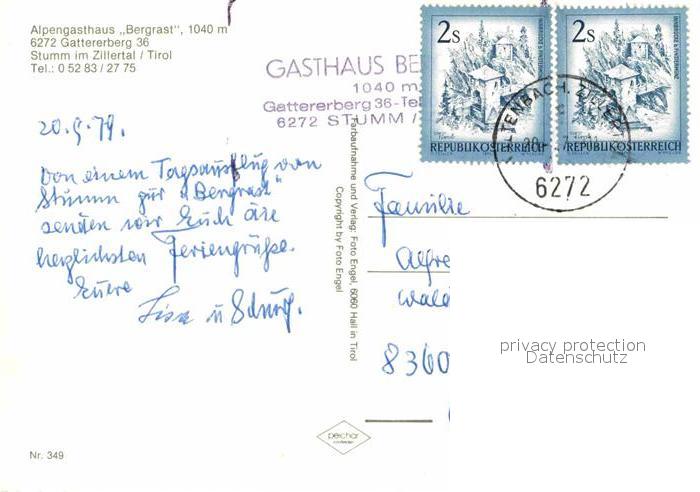 Alpengasthaus „Bergrast“, 1040 m
6272 Gattererberg 36
Stumm im Zillertal / Tirol
Tel.: 0 52 83 / 27 75
GASTHAUS BE
1040 m
Gattererberg 36-Te
6272 STUMM /
2s
REPUBLIK ÖSTERREICH
2s
REPUBLIK ÖSTERREICH
6272
20.9.79.
Von einem Tagsausflug von
Stumm zur „Bergrast“
senden wir Euch die
herzlichsten Feriengrüße.
Eure
u
Farbaufnahme und Verlag: Foto Engel, 6060 Hall in Tirol
Copyright by Foto Engel
Familie
Alfre
Wald
8300
privacy protection
Datenschutz
peichar
Nr. 349